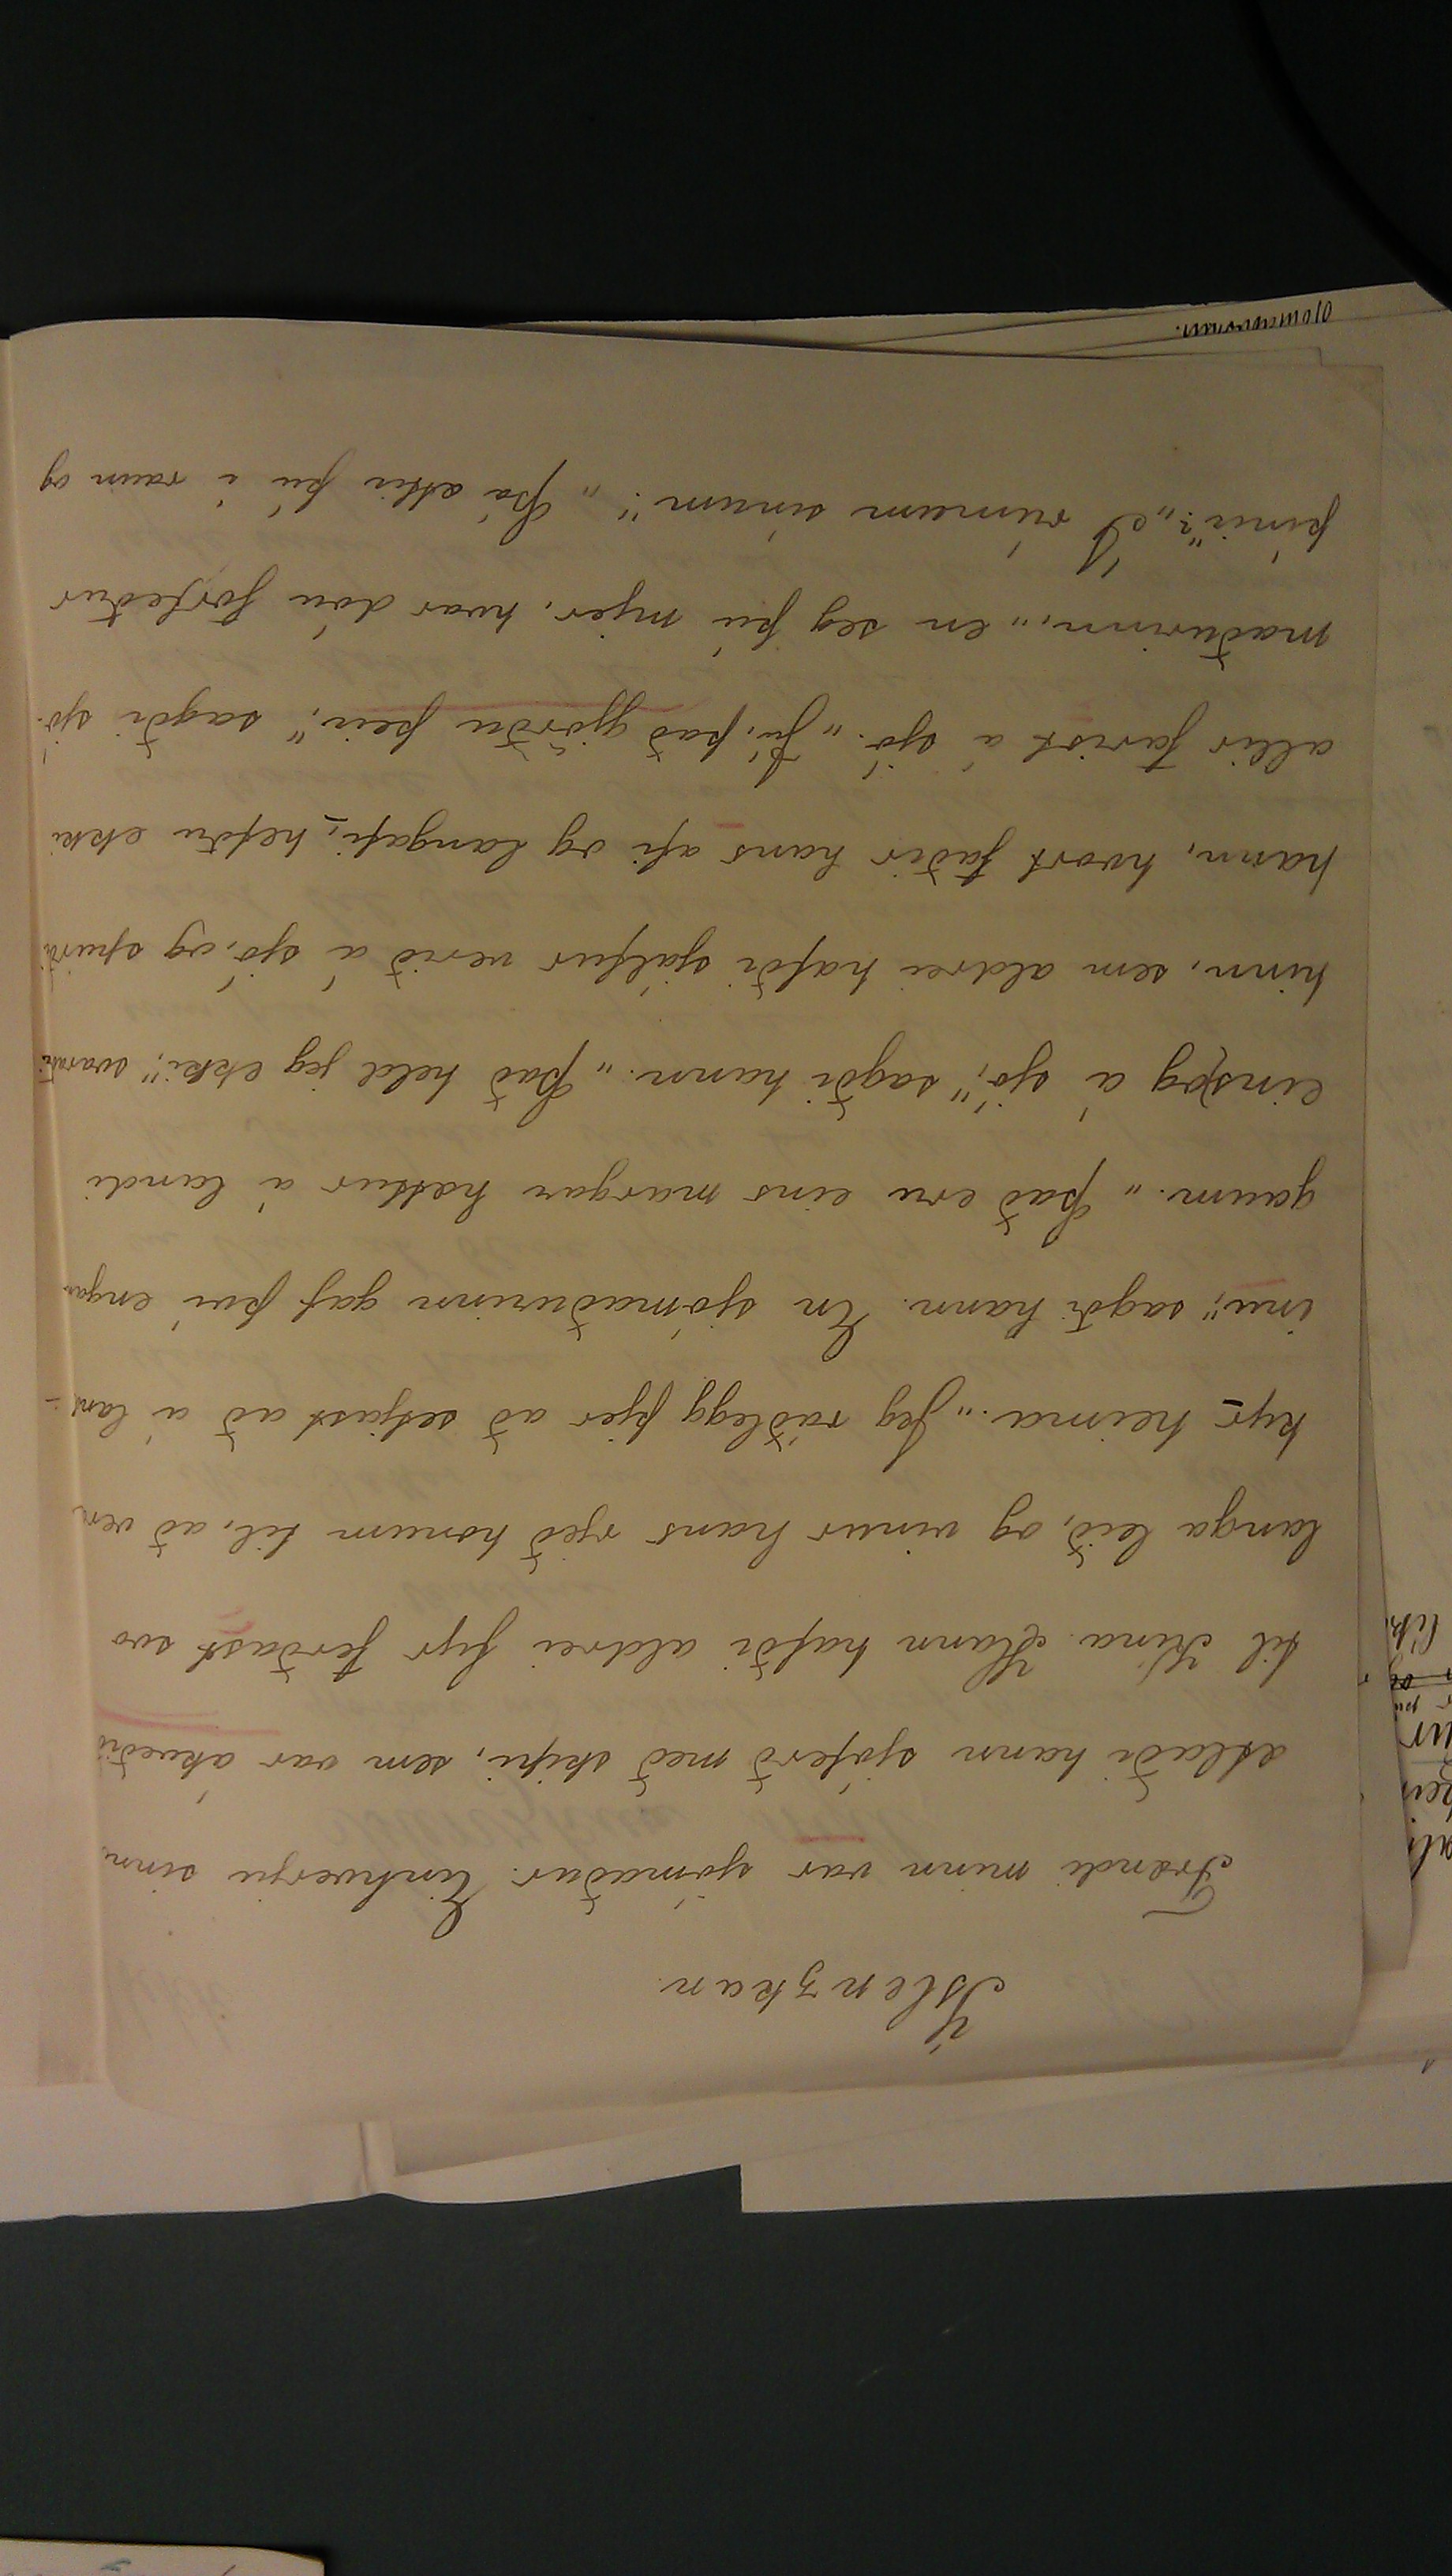 Íslenzkan.
Frændi minn var sjómaður. Einhverju sinn
ætlaði hann sjóferð með skipi, sem var ákveðið
til Kína. Hann hafði aldrei fyr ferðast svo
langa leið, og vinur hans rjeð honum til, að ver
kyr heima. „Jeg ráðlegg þjer að setjast að á land-
inu," sagði hann. En sjómaðurinn gaf því engan
gaum. „Það eru eins margar hættur á landi
eins og á sjó," sagði hann. „Það held jeg ekki," svaraði
hinn, sem aldrei hafði sjálfur verið á sjó, og spurði
hann, hvort faðir hans afi og langafi, hefðu ekki
allir farist á sjó. „Jú, það gjörðu þeir," sagði sjó-
maðurinn, „en seg þú mjer, hvar dóu forfeður
þínir?" „Í rúmum sínum". „Þá ættir þú í raun og